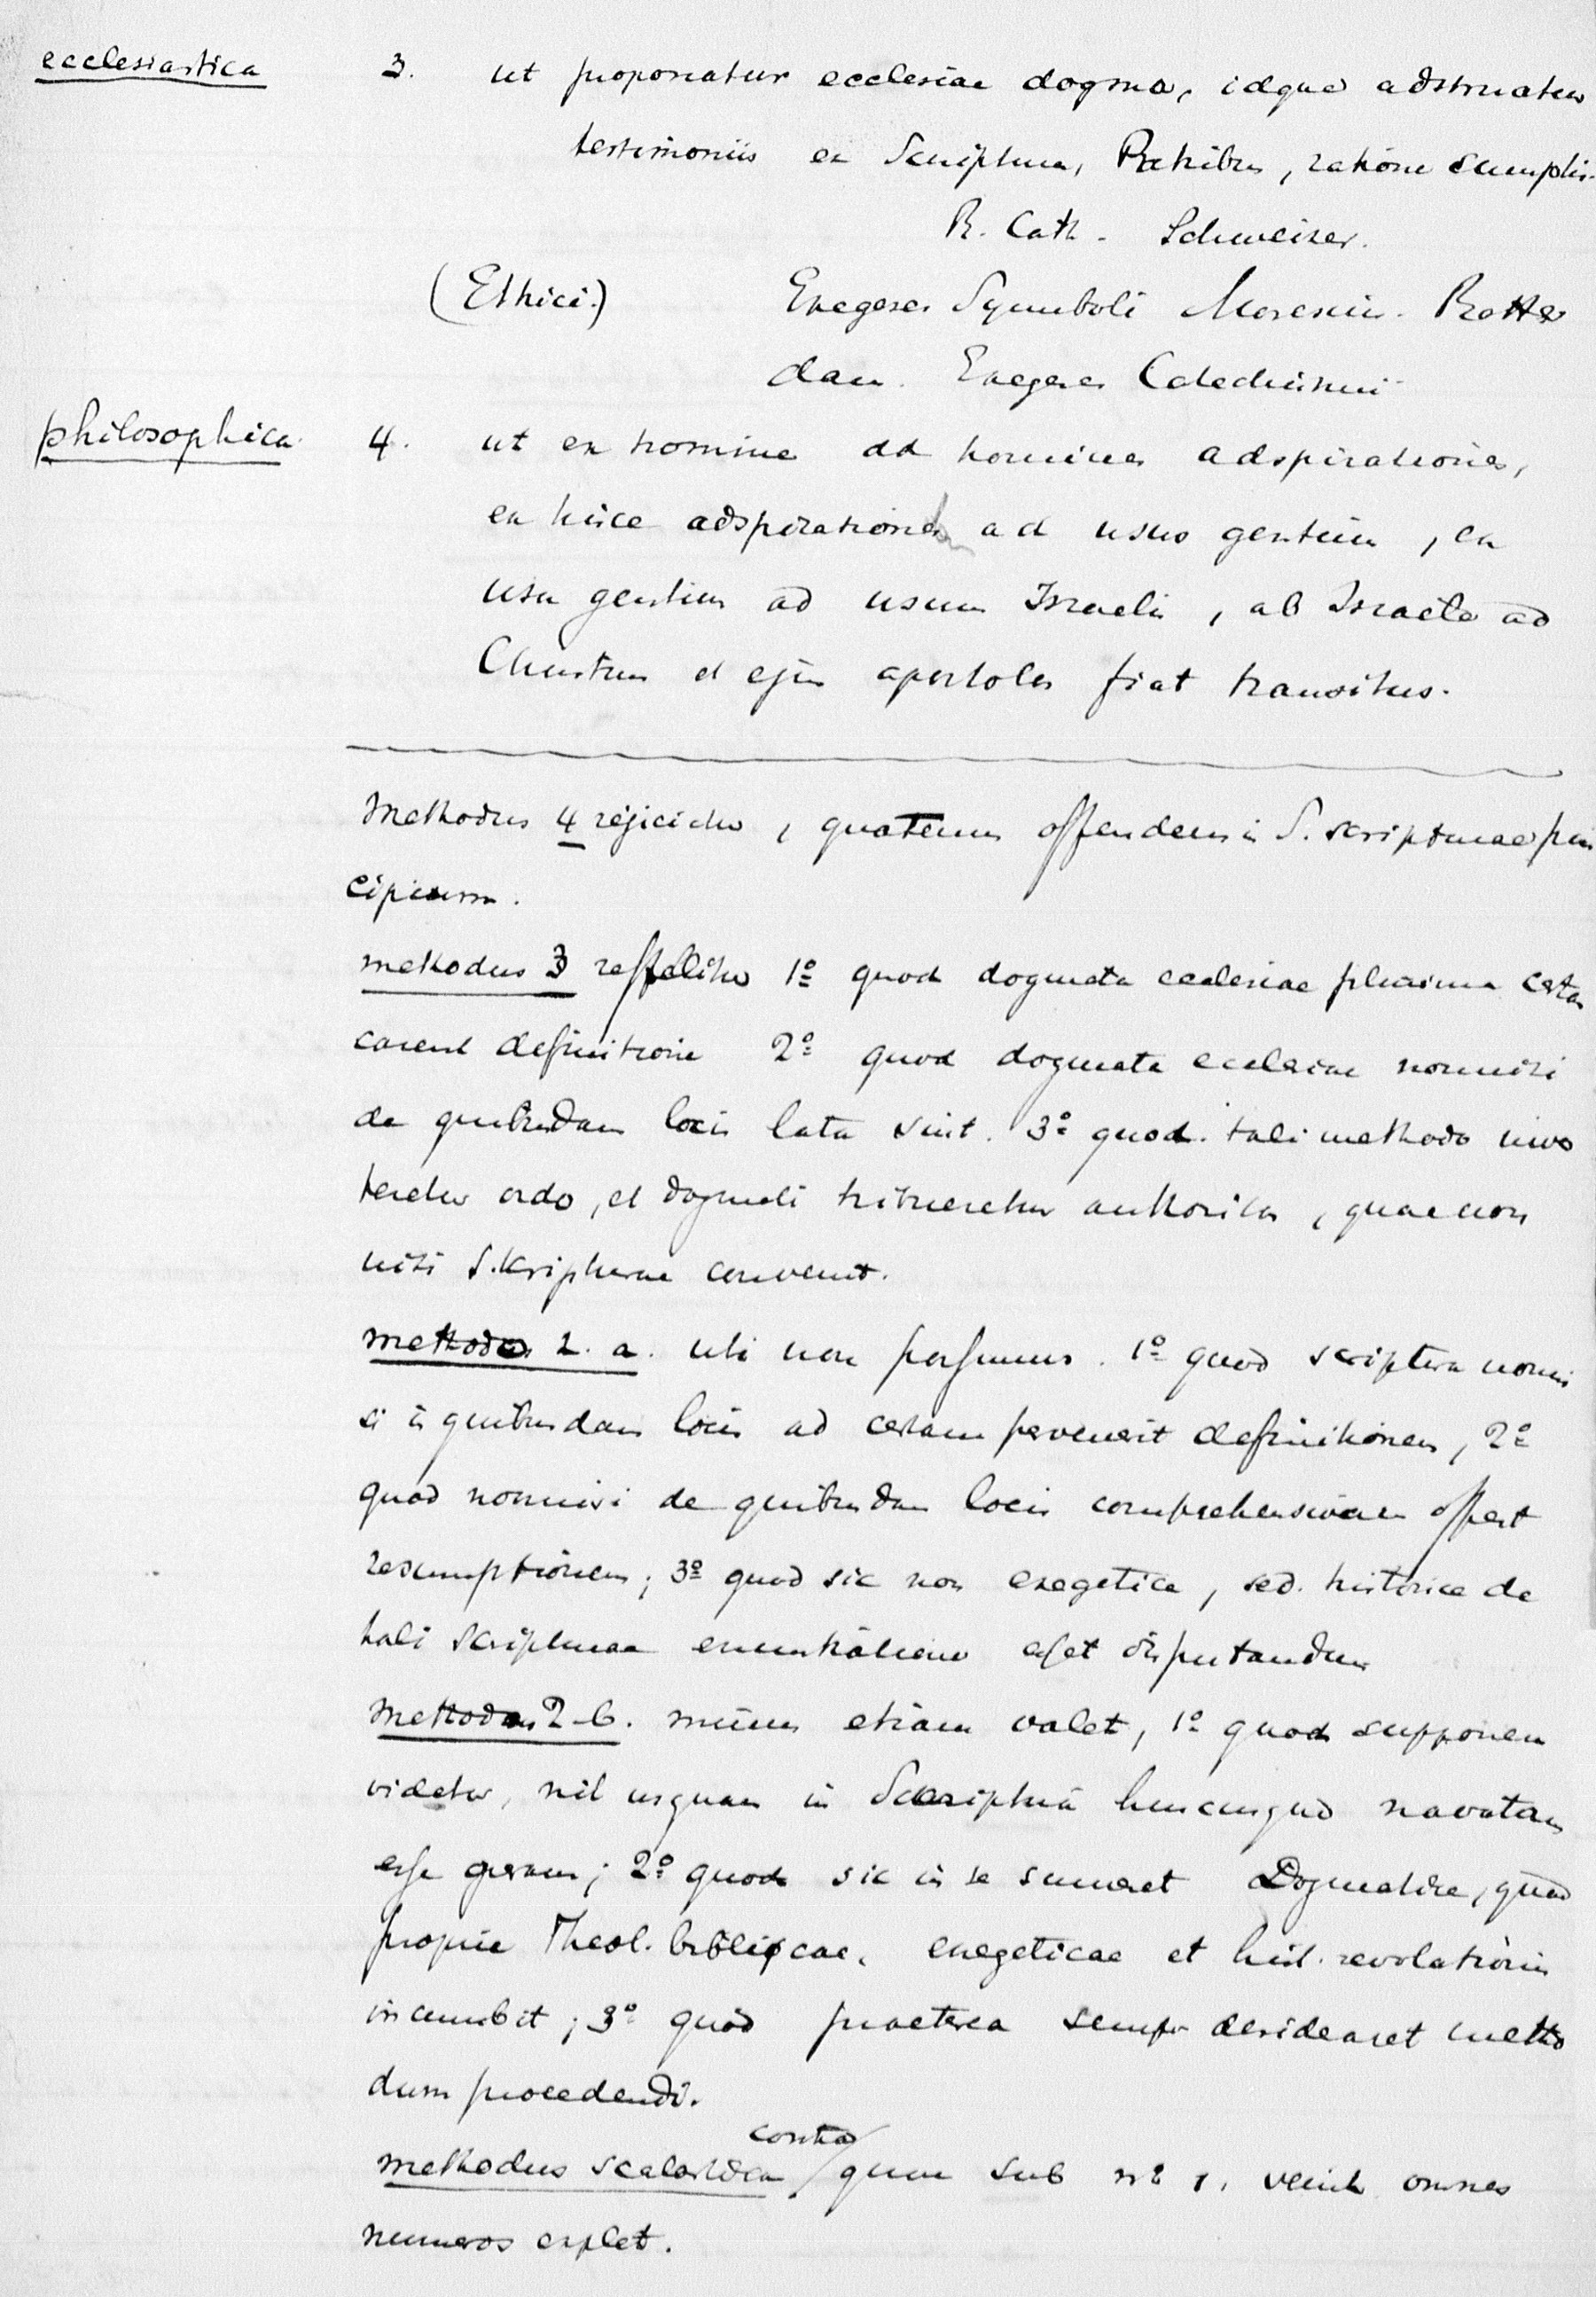 ecclesiastica 3. ut proponatur ecclesiae dogma, idque adstruatur
testimoniis ex Scriptura, Patribus, ratione sumptis.
R. Cath. Schweizer.
(Ethici.) Exegeses Symboli Moresini. Rotter
dam. Exegeses Catechismi
philosophica. 4. ut ex homine ad hominis adspirationes,
ex hisce adspirationibus ad usus gentium, ex
usu gentium ad usum Israelis, ab Israele ad
Christum et ejus apostolos fiat transitus.
Methodus 4 rejicitur, quatenus offendens in S. scripturae prin
cipium.
methodus 3 repellitur 1º quod dogmata ecclesiae plurima certa
carent definitione 2º quod dogmata ecclesiae nonnisi
de quibusdam locis lata sint. 3º quod tali methodo inver
teretur ordo, et dogmati tribueretur authoritas, quae non
nisi S. scripturae convenit.
methodo 2. a. uti non possumus. 1º quod scriptura nonni
si in quibusdam locis ad certam pervenerit definitionem, 2º
quod nonnisi de quibusdam locis comprehensivam offert
resumptionem; 3º quod sic non exegetice, sed historice de
tali scripturae enuntiatione esset disputandum
Methodus 2-b. minus etiam valet, 1º quod supponere
videtur, nil usquam in Scriptura hucusque novatum
esse ; 2º quod sic in se sumeret Dogmatice, quod
proprie Theol. biblicae, exegeticae et hist. revelationis
incumbit; 3º quod praeterea semper desideraret metho
dum procedendi.
methodus scalastica contra quae sub nº 1. venit omnes
numeros explet.